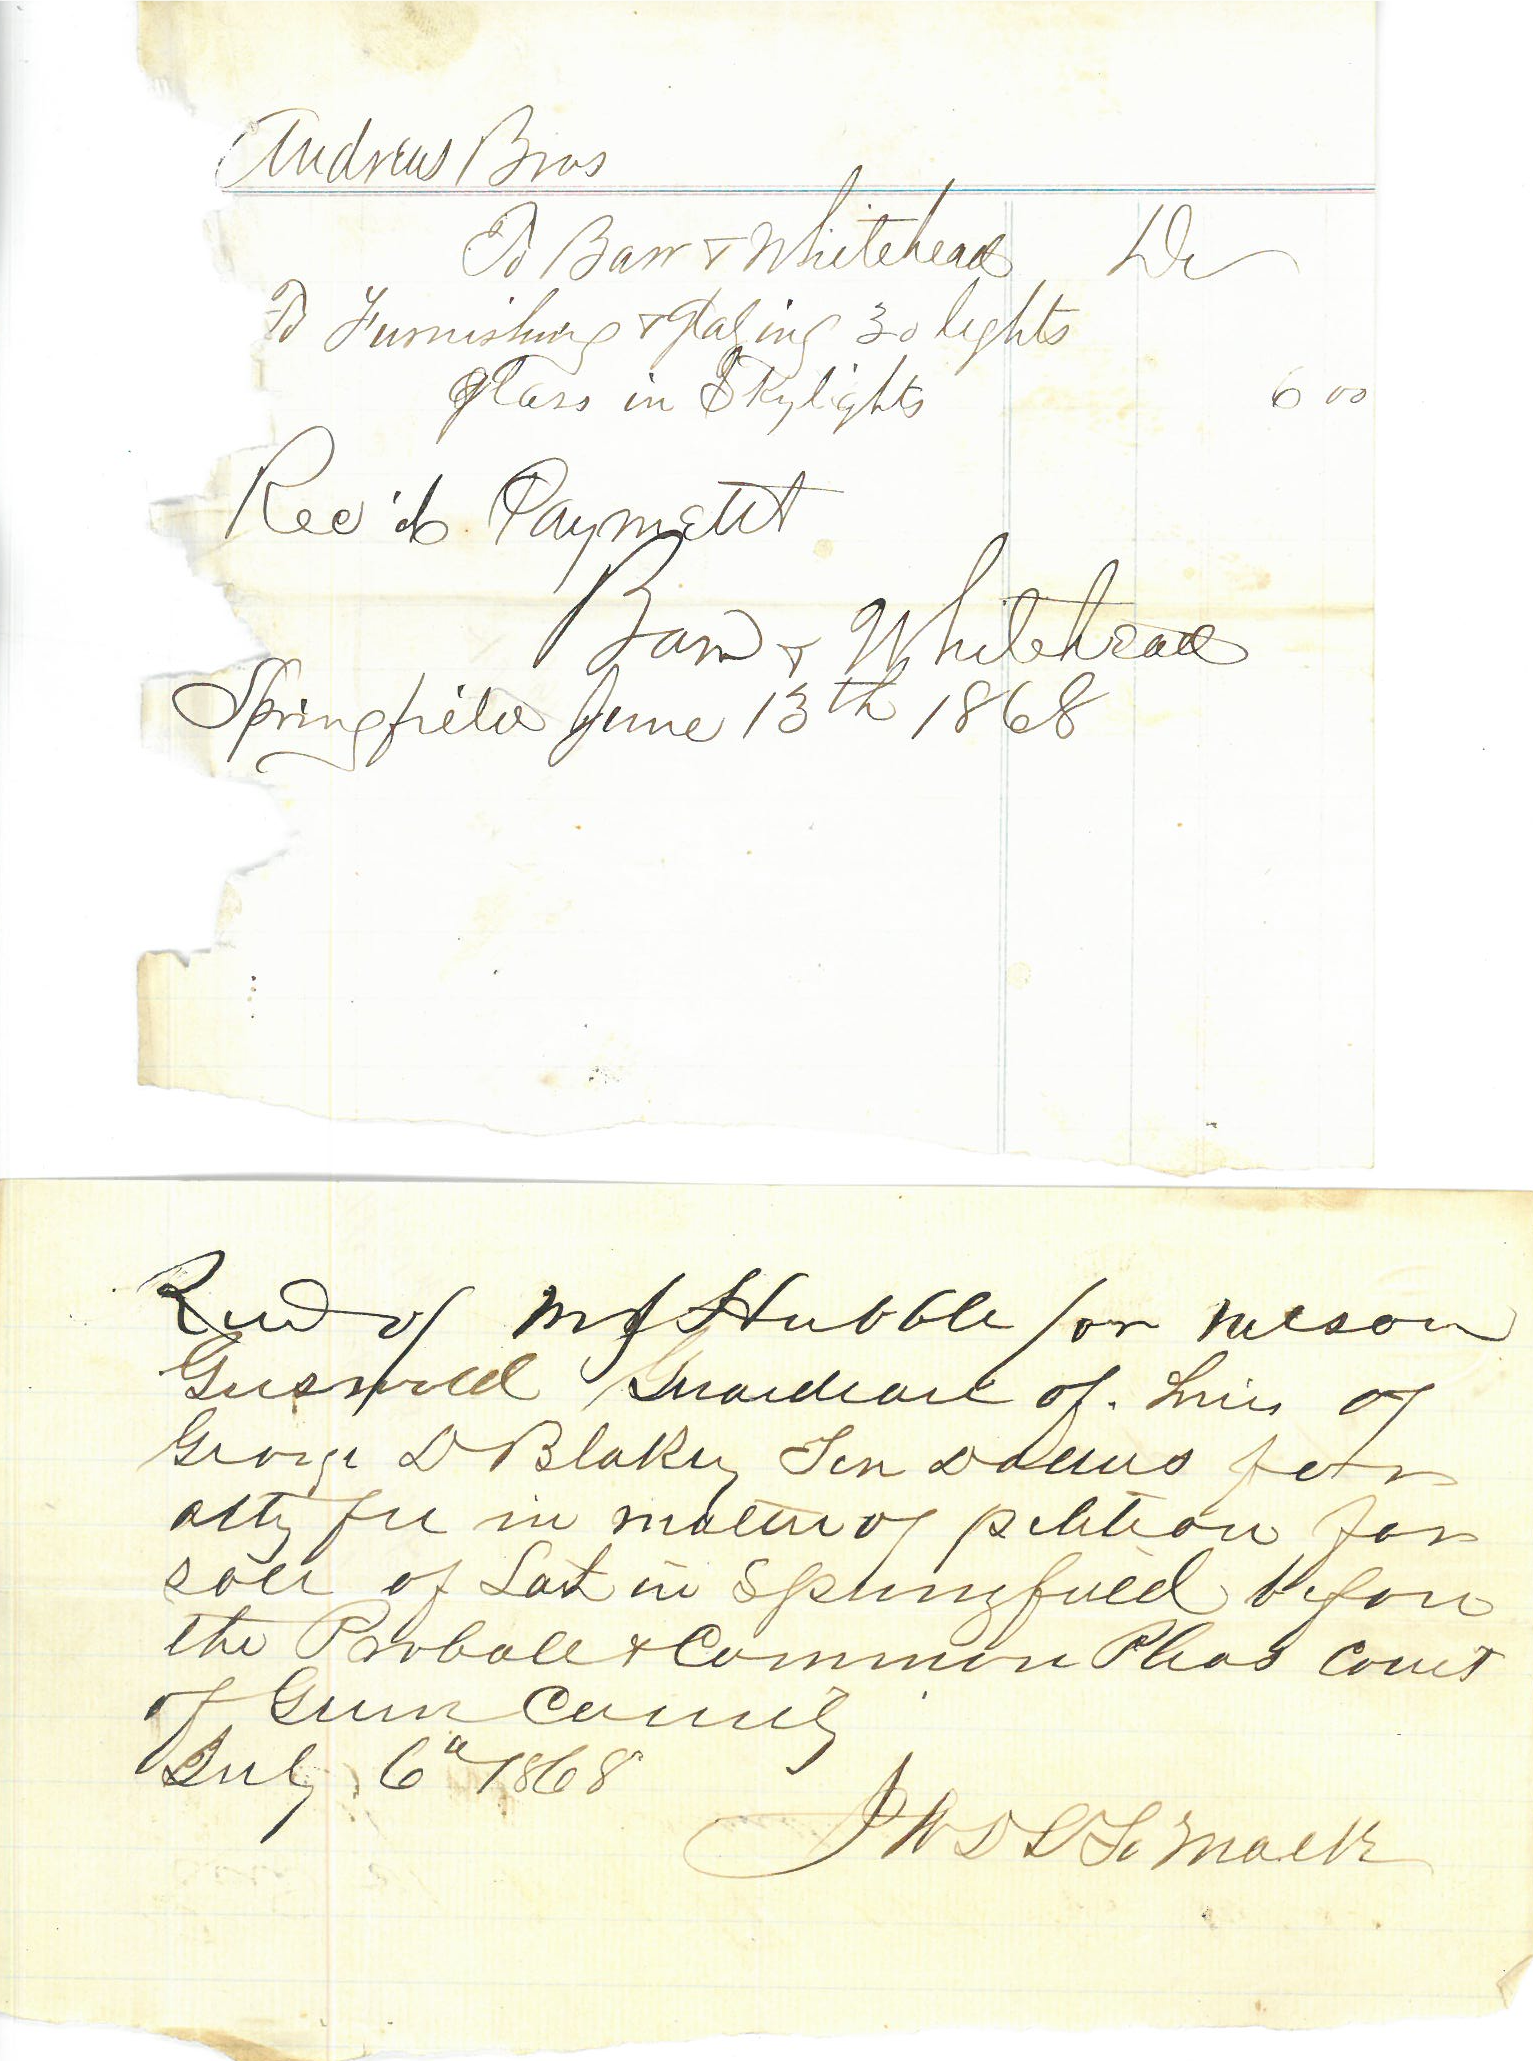 Andrews Bros
To Barr & Whitehead Dr
To Furnishing & glazing 30 lights
glass in Skylights 6 00
Rec'd Payment
Barr & Whitehead
Springfield June 13th 1868
Recd of M J Hubble for Nelson
Griswold Guardian of heirs of
George D Blakey Ten Dollars for
atty fee in matter of petition for
sale of Lot in Springfield before
the Probate & Common Pleas Court
of Green County
July 6" 1868
J W D L F Mack